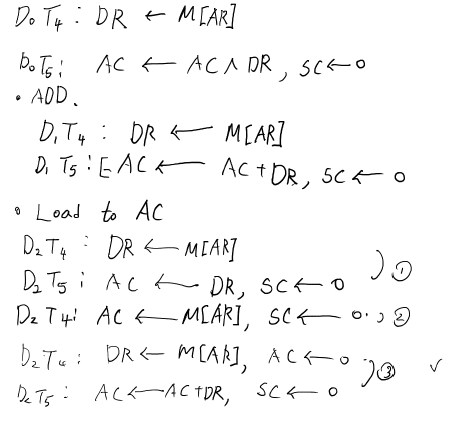 D₀T₄ : DR ← M[AR]
D₀T₅ : AC ← AC ∧ DR, SC ← 0
• ADD.
D₁T₄ : DR ← M[AR]
D₁T₅ : E AC ← AC + DR, SC ← 0
• Load to AC
D₂T₄ : DR ← M[AR]
D₂T₅ : AC ← DR, SC ← 0 ) ①
D₂T₄ : AC ← M[AR], SC ← 0. , ②
D₂T₄ : DR ← M[AR], AC ← 0
D₂T₅ : AC ← AC + DR, SC ← 0 ) ③ ✓